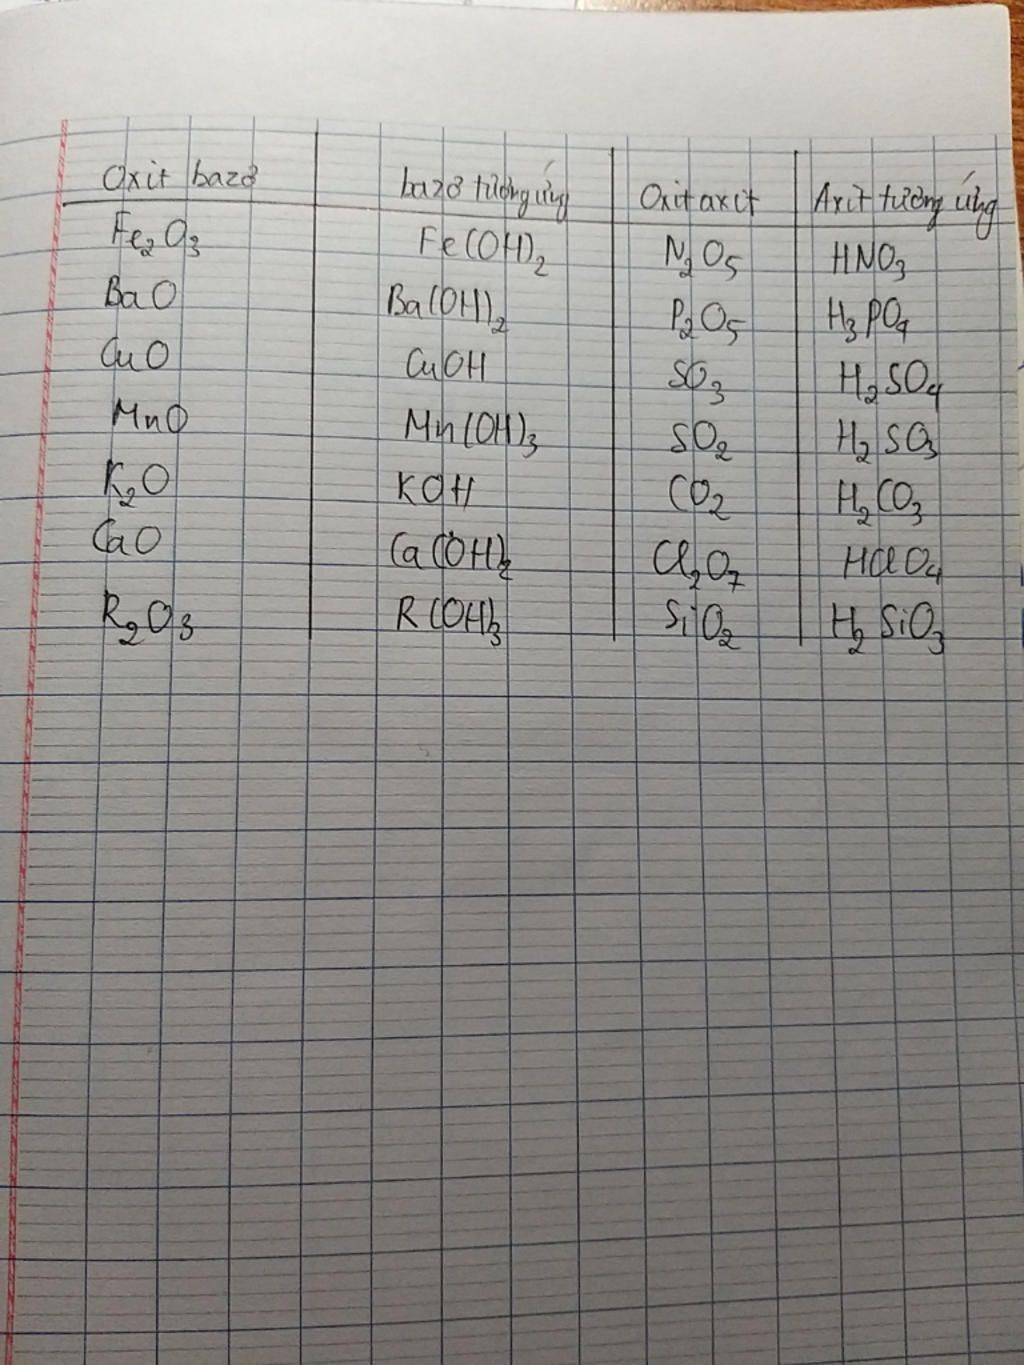 Oxit bazơ | bazơ tương ứng | Oxit axit | Axit tương ứng
Fe₂O₃ | Fe(OH)₂ | N₂O₅ | HNO₃
BaO | Ba(OH)₂ | P₂O₅ | H₃PO₄
CuO | CuOH | SO₃ | H₂SO₄
MnO | Mn(OH)₃ | SO₂ | H₂SO₃
K₂O | KOH | CO₂ | H₂CO₃
CaO | Ca(OH)₂ | Cl₂O₇ | HClO₄
R₂O₃ | R(OH)₃ | SiO₂ | H₂SiO₃